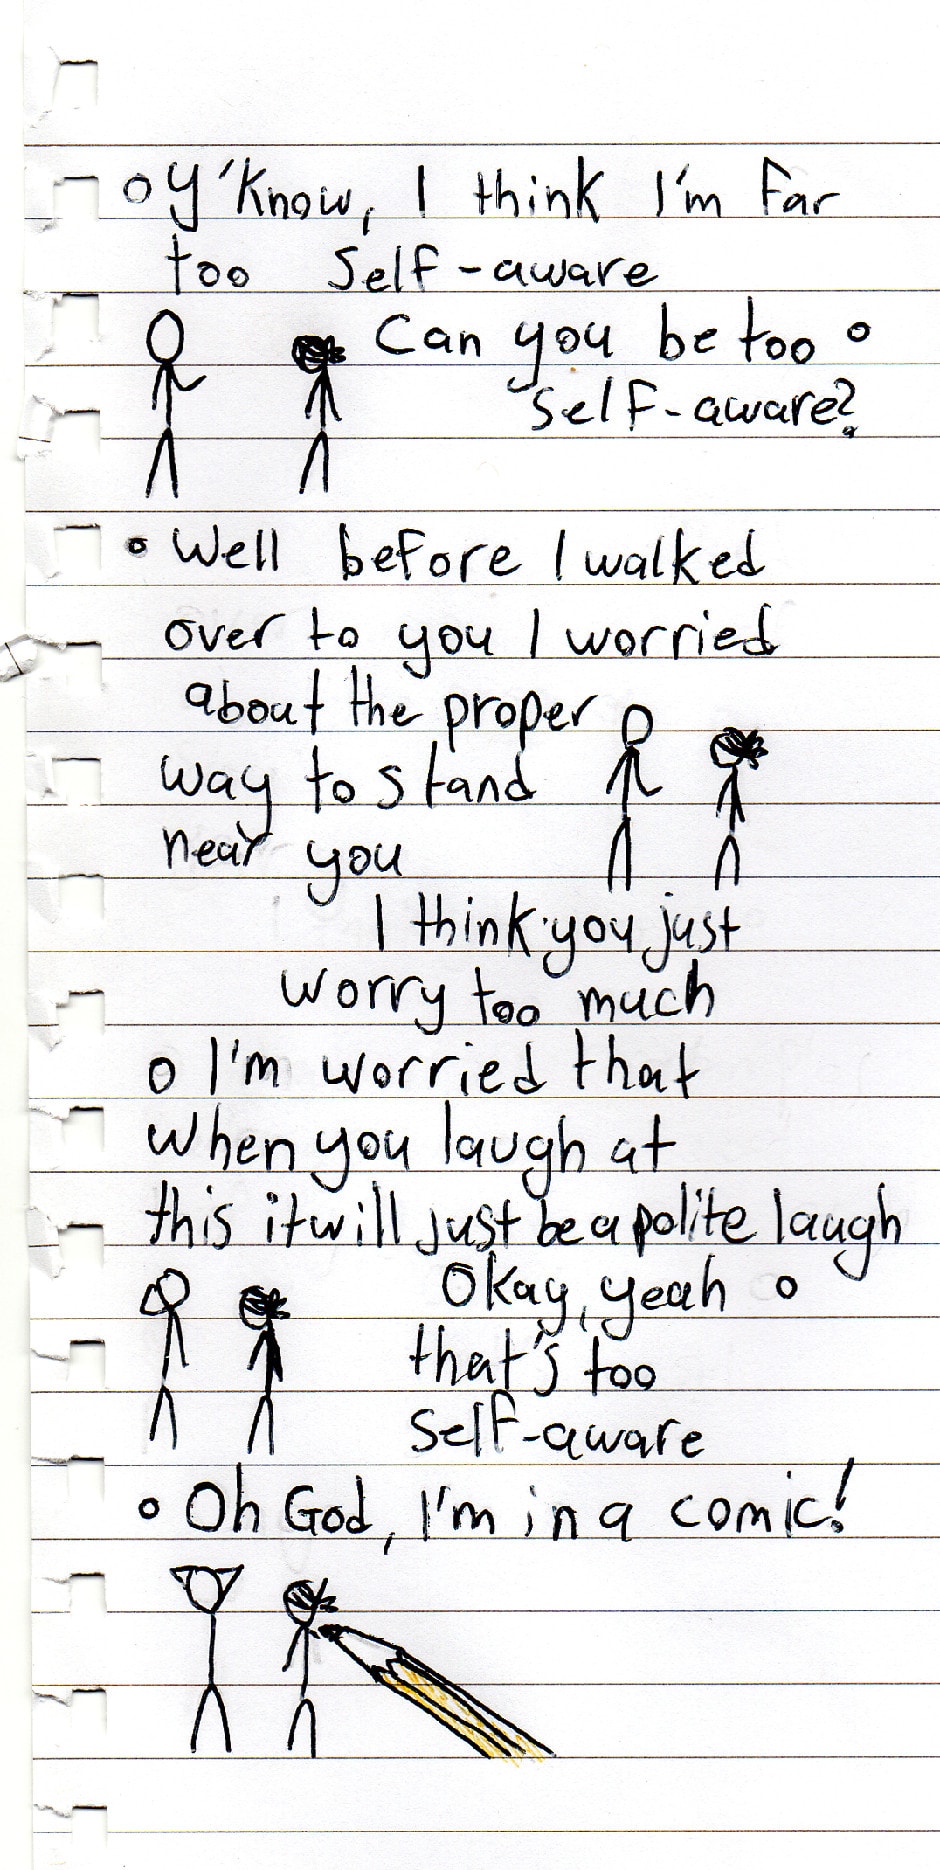 Y'Know, I think I'm far
too self-aware
Can you be too
self-aware?
Well before I walked
over to you I worried
about the proper
way to stand
near you
I think you just
worry too much
I'm worried that
when you laugh at
this it will just be a polite laugh
Okay, yeah
that's too
self-aware
Oh God, I'm in a comic!